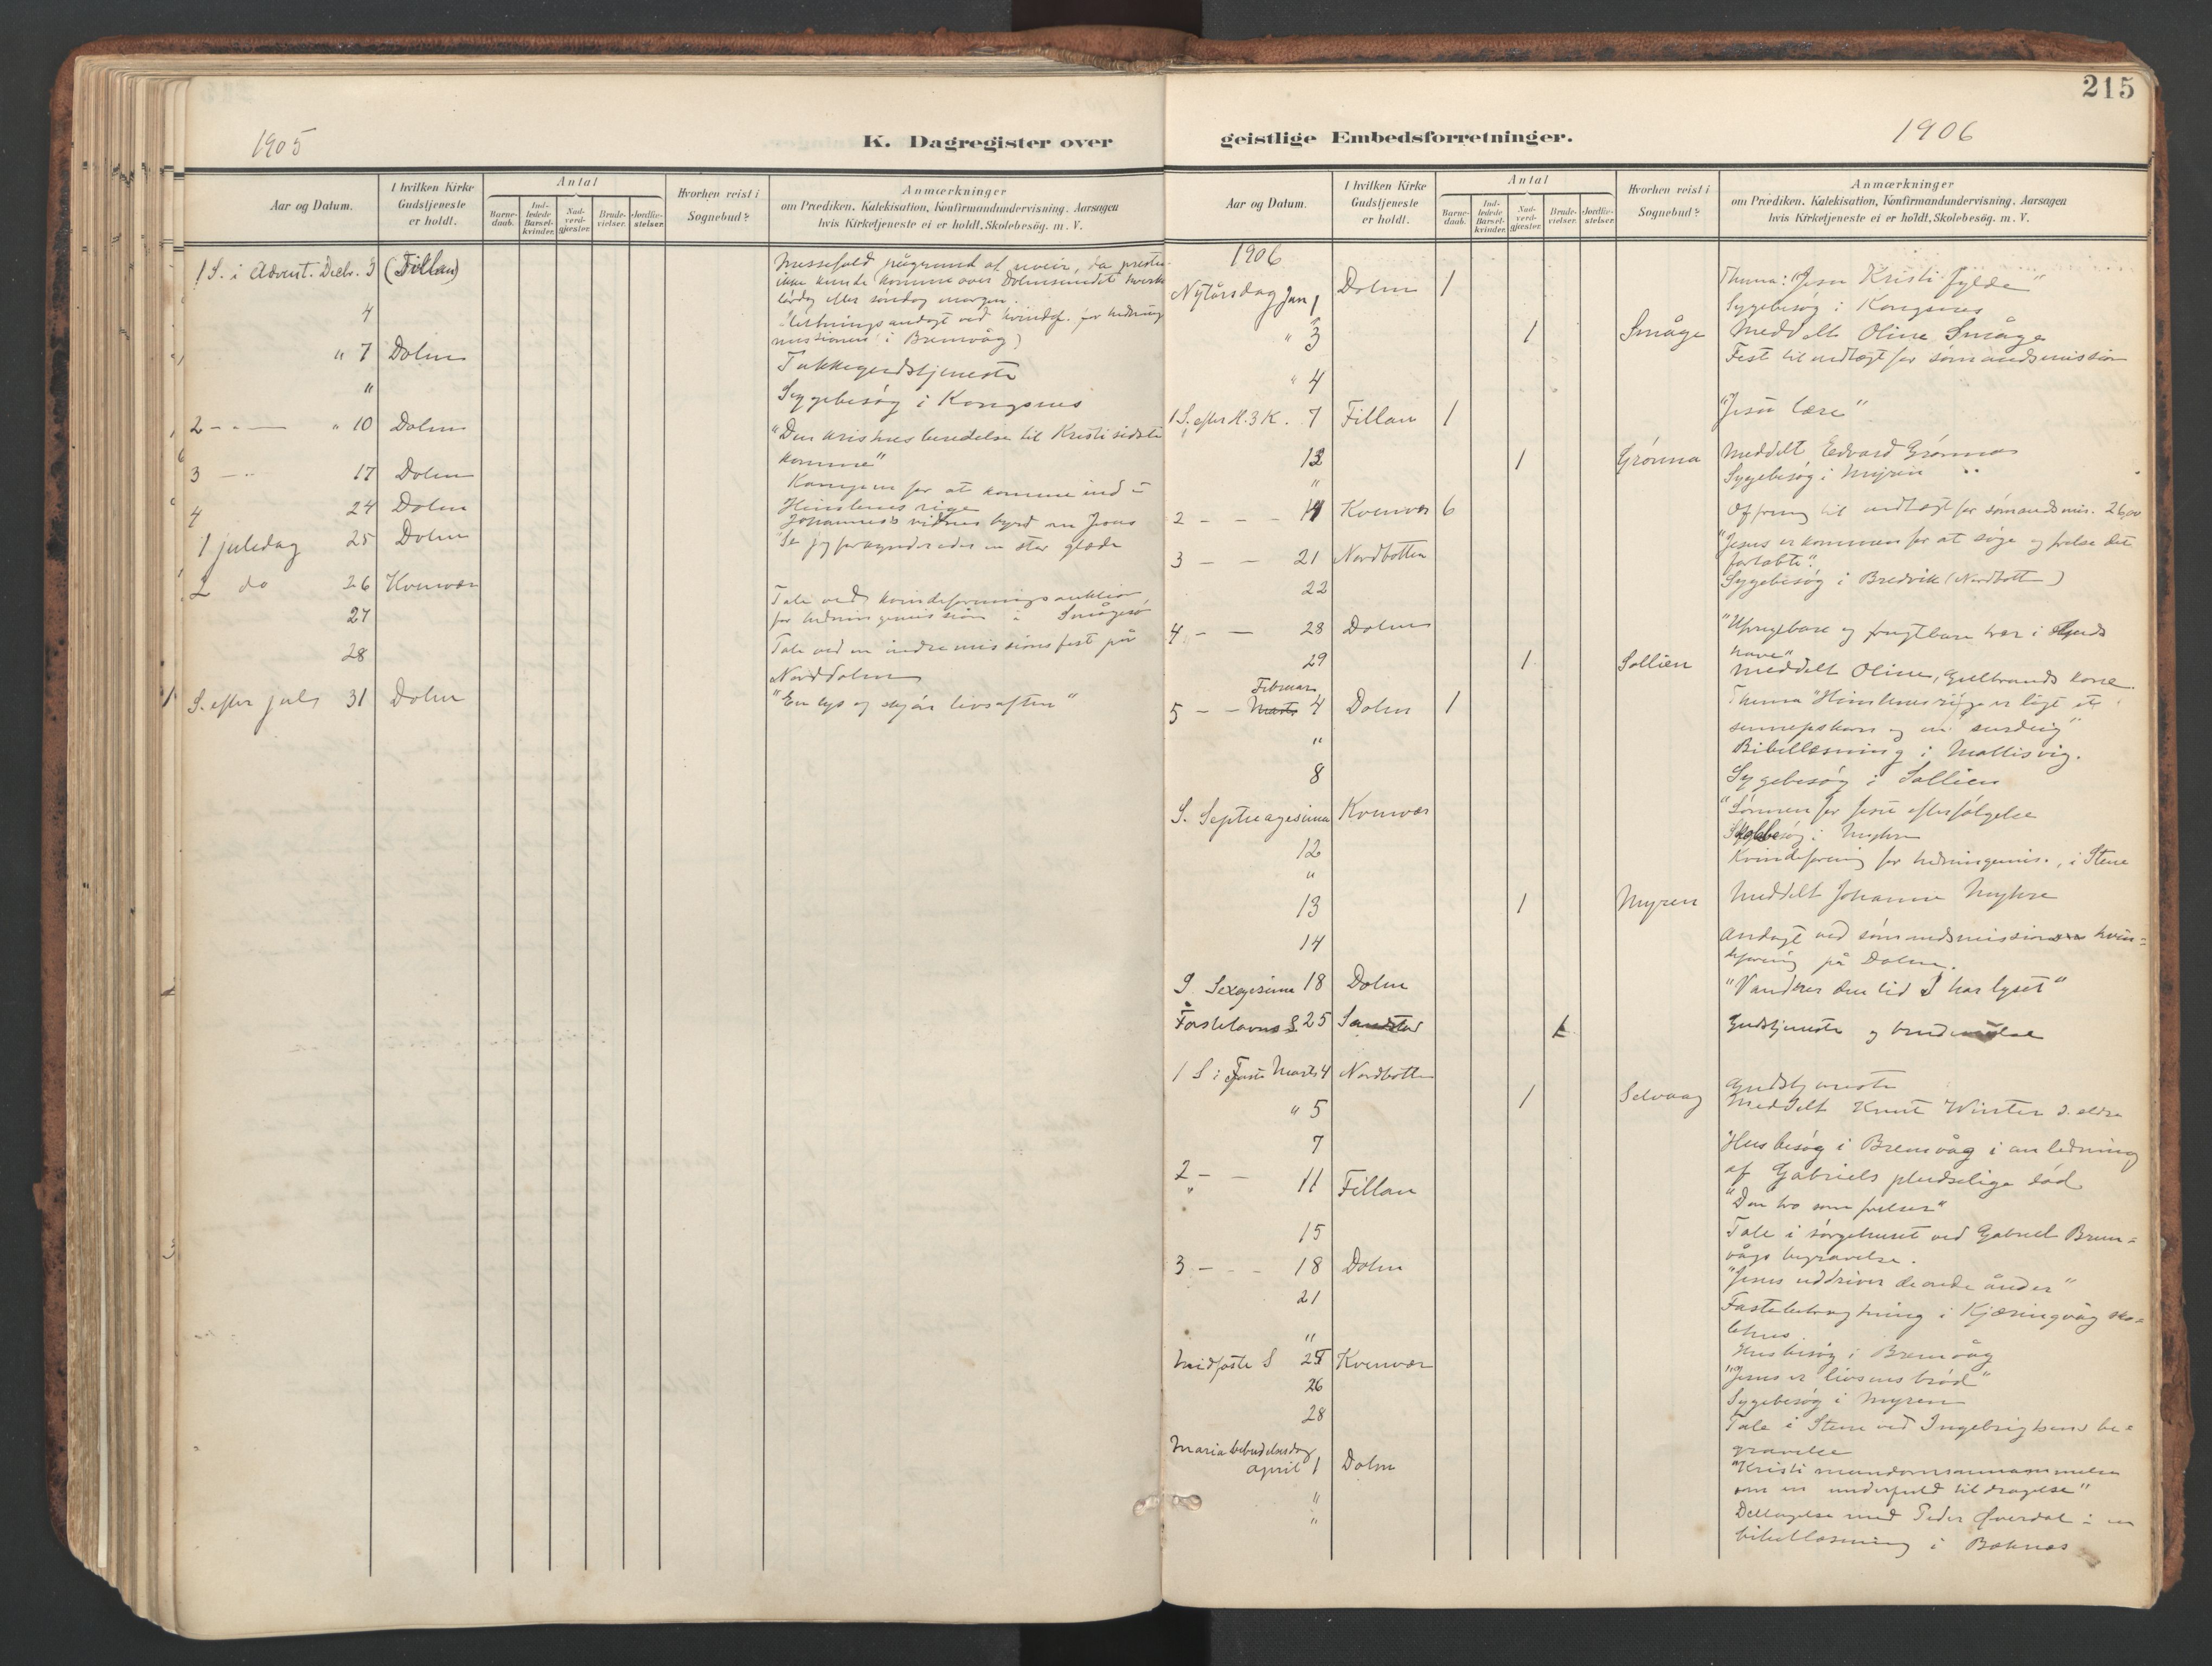 215
1905
K. Dagregister over
Aar og Datum.
I hvilken Kirke Gudstjeneste er holdt.
Antal
Barne-daab.
Ind-ledede Barsel-kvinder.
Nad-verd-gjæster.
Brude-vielser.
Jordfæ-stelser.
Hvorhen reist i Sognebud?
Anmærkninger
om Prædiken. Katekisation, Konfirmandundervisning. Aarsagen
hvis Kirketjeneste ei er holdt. Skolebesög. m. V.
1 S. i Advent. Decbr. 3 (Fillan) Messefald pågrund af uveir, da presten
ikke kunde komme over Dolmsundet hverken
lördag eller söndag morgen.
4
i Bremvåg)
" 7 Dolm Takkegudstjeneste
" Sygebesög i Kongsnes
2 - - " 10 Dolm "Den kristnes beredelse til Kristi sidste
komme"
3 - - 17 Dolm Kampen for at komme ind i
Himlenes rige
4 24 Dolm Johannes's vidnesbyrd om Jesus
1 juledag 25 Dolm Se jeg forkynder eder en stor glæde
2 do 26 Kvenvær
27 Tale ved kvindeforeningsauktion
for hedningemissionen i Smågesö
28 Tale ved en indremissionsfest på
Norddolm
S. efter jul 31 Dolm "En lys og skjön livsaften"
geistlige Embedsforretninger.
1906
Aar og Datum.
I hvilken Kirke Gudstjeneste er holdt.
Antal
Barne-daab.
Ind-ledede Barsel-kvinder.
Nad-verd-gjæster.
Brude-vielser.
Jordfæ-stelser.
Hvorhen reist i Sognebud?
Anmærkninger
om Prædiken. Katekisation, Konfirmandundervisning. Aarsagen
hvis Kirketjeneste ei er holdt. Skolebesög. m. V.
1906
Nytårsdag Jan 1 Dolm 1 Thema: "Jesu Kristi fylde"
Sygebesög i Kongsnes
" 3 1 Småge Meddelt Oline Småge
" 4 Fest til indtægt for sömandsmission
1 S. efter H. 3 K. 7 Fillan 1 "Jesu lære"
13 1 Grönna Meddelt Edvard Grönnæs
" Sygebesög i Myren
2 - - - 14 Kvenvær 6 Ofring til indtægt for sömandsmis. 26,00
3 - - 21 Nordbotten "Jesus er kommen for at söge og frelse det
fortabte".
22 Sygebesög i Bredvik (Nordbotten)
4 - - 28 Dolm "Ufrugtbare og frugtbare trær i Guds
have"
29 1 Sollien Meddelt Oline, Gulbrands kone.
Februar
5 - - Marts 4 Dolm 1 Thema "Himlenes rige er ligt et
sennepskorn og en surdeig"
" Bibellæsning i Mallisvig.
8 Sygebesög i Sollien
S. Septuagesima Kvenvær "Lönnen for Jesu efterfölgelse
12 Skolebesög i Myhre
" Kvindeforening for hedningemis., i Stene
13 1 Myren Meddelt Johanne Myhre
14 Andagt ved sömandsmissions kvin-
deforening på Dolm.
S. Sexagesima 18 Dolm "Vandrer den tid I har lyset"
Fastelavns S. 25 Sandstad 1 Gudstjeneste og brudevielse
1 S i Faste Marts 4 Nordbotten Gudstjeneste
" 5 1 Selvaag Meddelt Knut Winter d. eldre
7 Husbesög i Bremvåg i anledning
af Gabriels pludselige död
2 - - 11 Fillan "Den tro som frelser"
"
15 Tale i sörgehuset ved Gabriel Brem-
vågs begravelse.
3 - - - 18 Dolm "Jesus uddriver de onde ånder"
21 Fastebetragtning i Kjæringvåg sko-
lehus.
" Husbesög i Bremvåg
Midfaste S 25 Kvenvær "Jesus er livsens bröd"
26 Sygebesög i Myren
28 Tale i Stene ved Ingebrigtsens be-
gravelse
Maria bebudelsesdag
April 1 Dolm "Kristi
som en underfuld tildragelse"
" Deltagelse med Peder Överdal i en
" bibellæsning i Baknæs